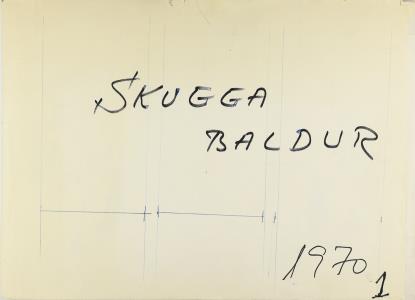 SKUGGA
BALDUR
1970
1